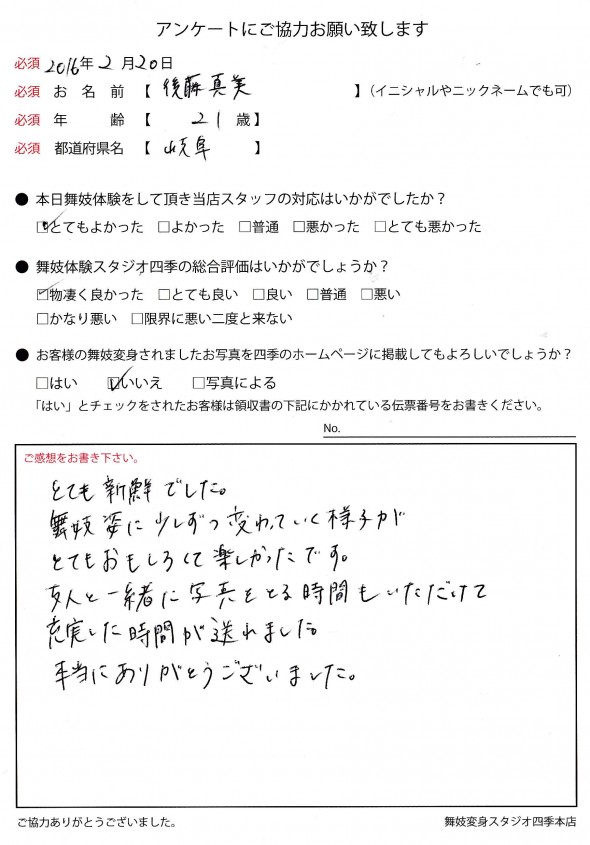 アンケートにご協力お願い致します
必須 2016年2月20日
必須 お名前【 後藤真美 】(イニシャルやニックネームでも可)
必須 年齢【 21歳】
必須 都道府県名【 岐阜 】
● 本日舞妓体験をして頂き当店スタッフの対応はいかがでしたか?
☑とてもよかった □よかった □普通 □悪かった □とても悪かった
● 舞妓体験スタジオ四季の総合評価はいかがでしょうか?
☑物凄く良かった □とても良い □良い □普通 □悪い
□かなり悪い □限界に悪い二度と来ない
● お客様の舞妓変身されましたお写真を四季のホームページに掲載してもよろしいでしょうか?
□はい ☑いいえ □写真による
「はい」とチェックをされたお客様は領収書の下記にかかれている伝票番号をお書きください。
No.
ご感想をお書き下さい。
とても新鮮でした。
舞妓姿に少しずつ変わっていく様子が
とてもおもしろくて楽しかったです。
友人と一緒に写真をとる時間もいただけて
充実した時間が送れました。
本当にありがとうございました。
ご協力ありがとうございました。
舞妓変身スタジオ四季本店